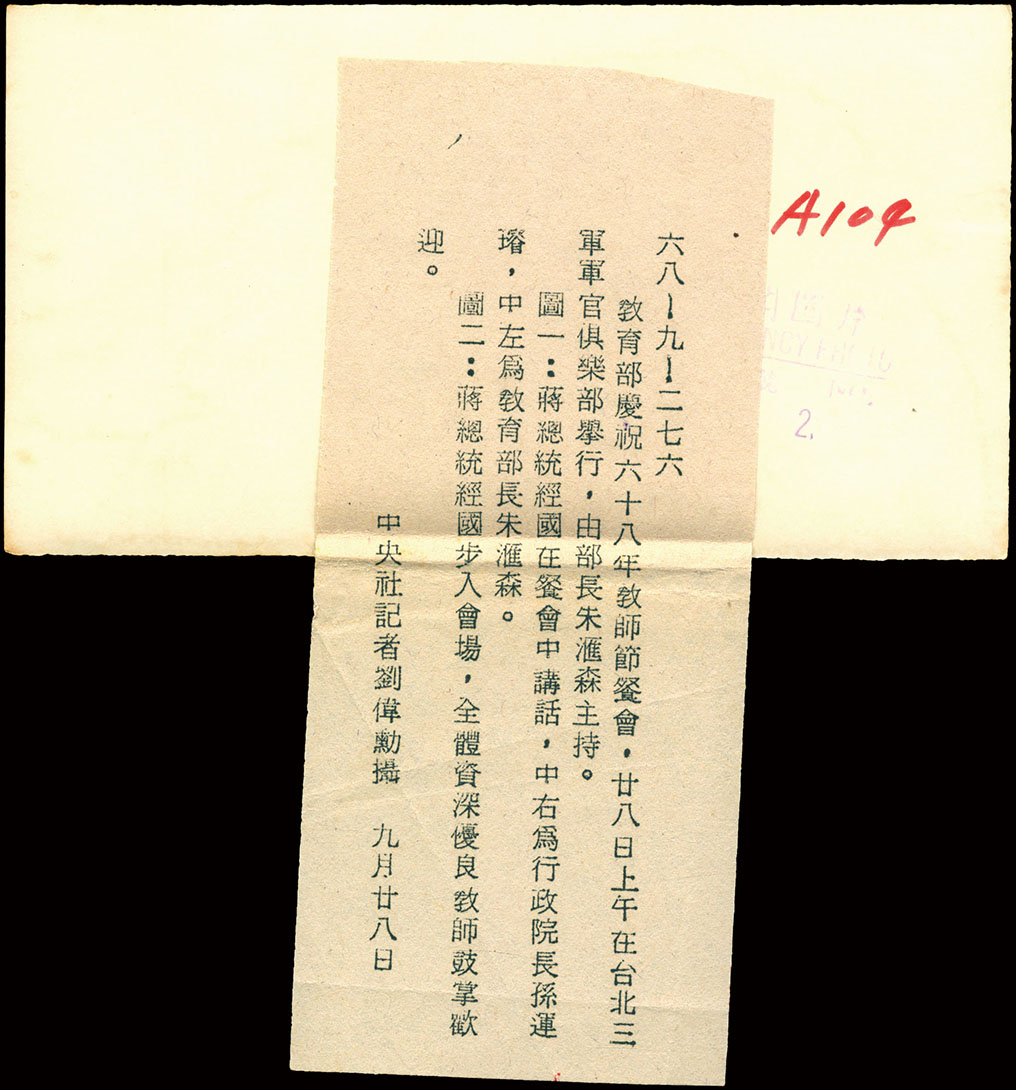 六八－九－二七六
教育部慶祝六十八年教師節餐會，廿八日上午在台北三
軍軍官俱樂部舉行，由部長朱滙森主持。
圖一：蔣總統經國在餐會中講話，中右爲行政院長孫運
璿，中左爲教育部長朱滙森。
圖二：蔣總統經國步入會場，全體資深優良教師鼓掌歡
迎。
中央社記者劉偉勳攝　九月廿八日
A104
2